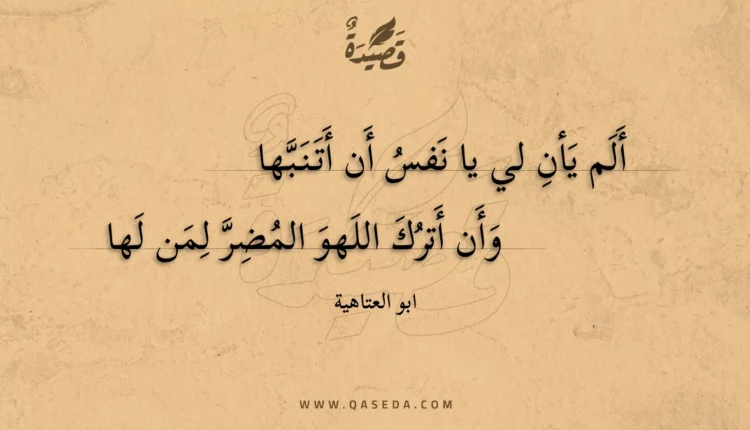 قَصِيدَةٌ
أَلَم يَأنِ لي يا نَفسُ أَن أَتَنَبَّها
وَأَن أَترُكَ اللَهوَ المُضِرَّ لِمَن لَها
ابو العتاهية
WWW.QASEDA.COM